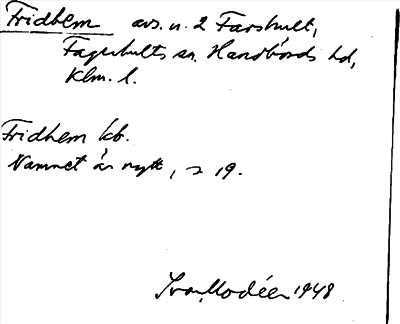 Fridhem avs. n. 2 Farshult,
Fagerhults sn. Handbörds hd,
Klm. l.
Fridhem kb.
Namnet är nytt, s 19.
Ivar Modéer 1948